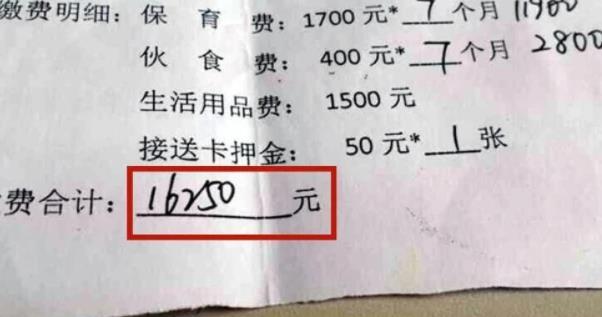 缴费明细：保 育 费：1700 元*7个月 11900
伙 食 费：400 元*7个月 2800
生活用品费：1500 元
接送卡押金：50 元*1张
费合计：16250元